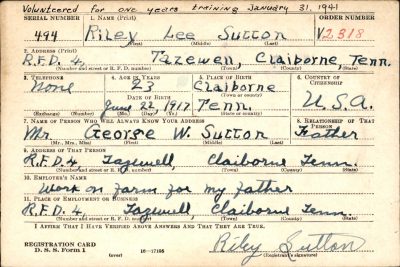 Volunteered for one years training January 31, 1941
SERIAL NUMBER 1. NAME (Print) ORDER NUMBER
494 Riley Lee Sutton V2,318
(First) (Middle) (Last)
2. ADDRESS (Print)
R.F.D. 4, Tazewen, Claiborne, Tenn.
(Number and street or R. F. D. number) (Town) (County) (State)
3. TELEPHONE 4. AGE IN YEARS 5. PLACE OF BIRTH 6. COUNTRY OF CITIZENSHIP
None 23 Claiborne
DATE OF BIRTH (Town or county)
June 22, 1917 Tenn. U.S.A.
(Exchange) (Number) (Mo.) (Day) (Yr.) (State or country)
7. NAME OF PERSON WHO WILL ALWAYS KNOW YOUR ADDRESS 8. RELATIONSHIP OF THAT PERSON
Mr. George W. Sutton Father
(Mr., Mrs., Miss) (First) (Middle) (Last)
9. ADDRESS OF THAT PERSON
R.F.D. 4 Tazewell, Claiborne Tenn.
(Number and street or R. F. D. number) (Town) (County) (State)
10. EMPLOYER'S NAME
Work on Farm for my father
11. PLACE OF EMPLOYMENT OR BUSINESS
R.F.D. 4, Tazewell, Claiborne Tenn.
(Number and street or R. F. D. number) (Town) (County) (State)
I AFFIRM THAT I HAVE VERIFIED ABOVE ANSWERS AND THAT THEY ARE TRUE.
REGISTRATION CARD
D. S. S. Form 1 16—17105 Riley Sutton
(over) (Registrant's signature)